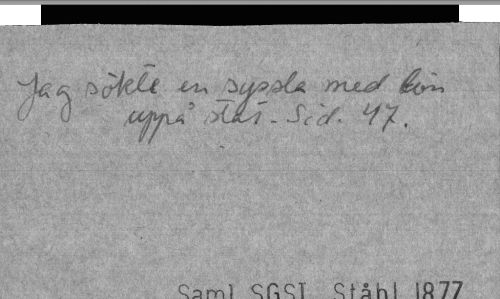 Jag sökte en syssla med lön
uppå stat. Sid. 47.
Saml. SGSI. Ståhl 1877